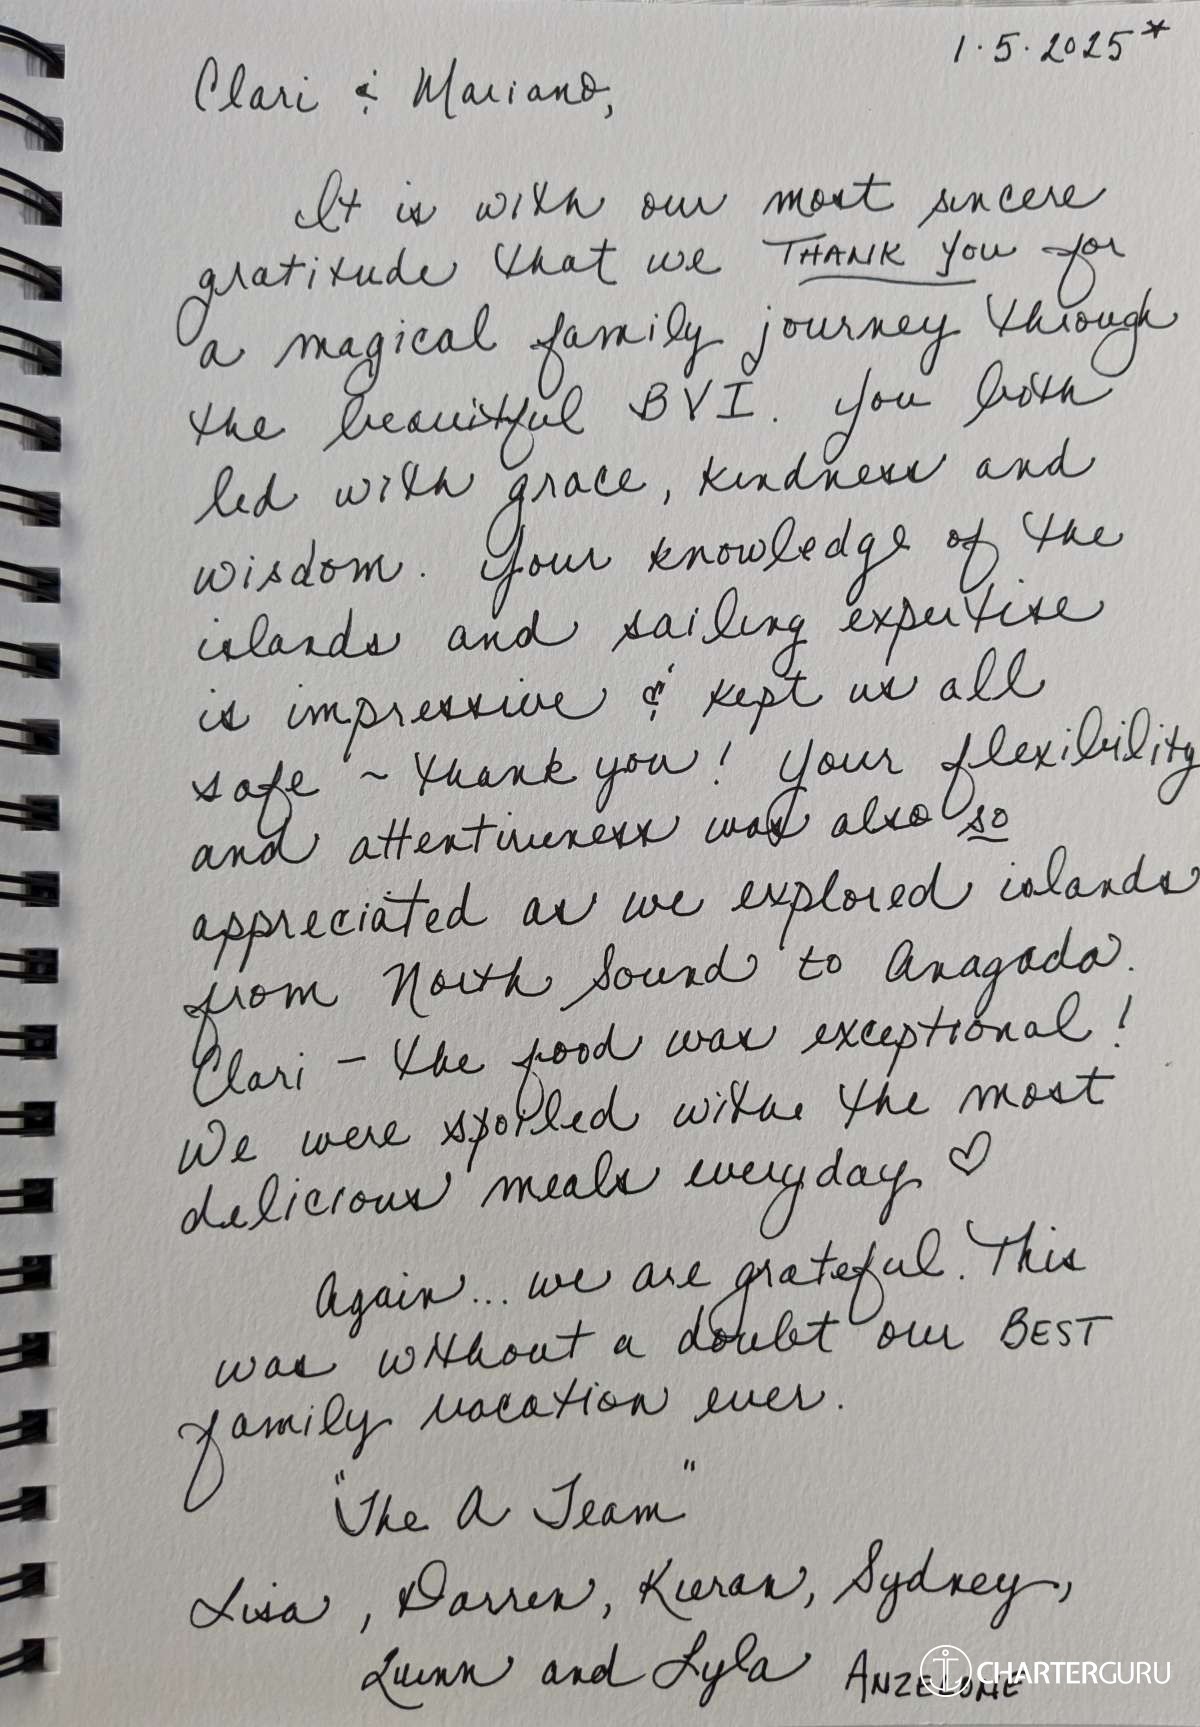 1.5.2025*
Clari & Mariano,
It is with our most sincere
gratitude that we THANK YOU for
a magical family journey through
the beautiful BVI. You both
led with grace, kindness and
wisdom. Your knowledge of the
islands and sailing expertise
is impressive & kept us all
safe ~ thank you! Your flexibility
and attentiveness was also so
appreciated as we explored islands
from North Sound to Anagada.
Clari - the food was exceptional!
We were spoiled withe the most
delicious meals everyday ♡
Again... we are grateful. This
was without a doubt our BEST
family vacation ever.
"The A Team"
Lisa, Darren, Kieran, Sydney,
Quinn and Lyla ANZELONE
CHARTERGURU